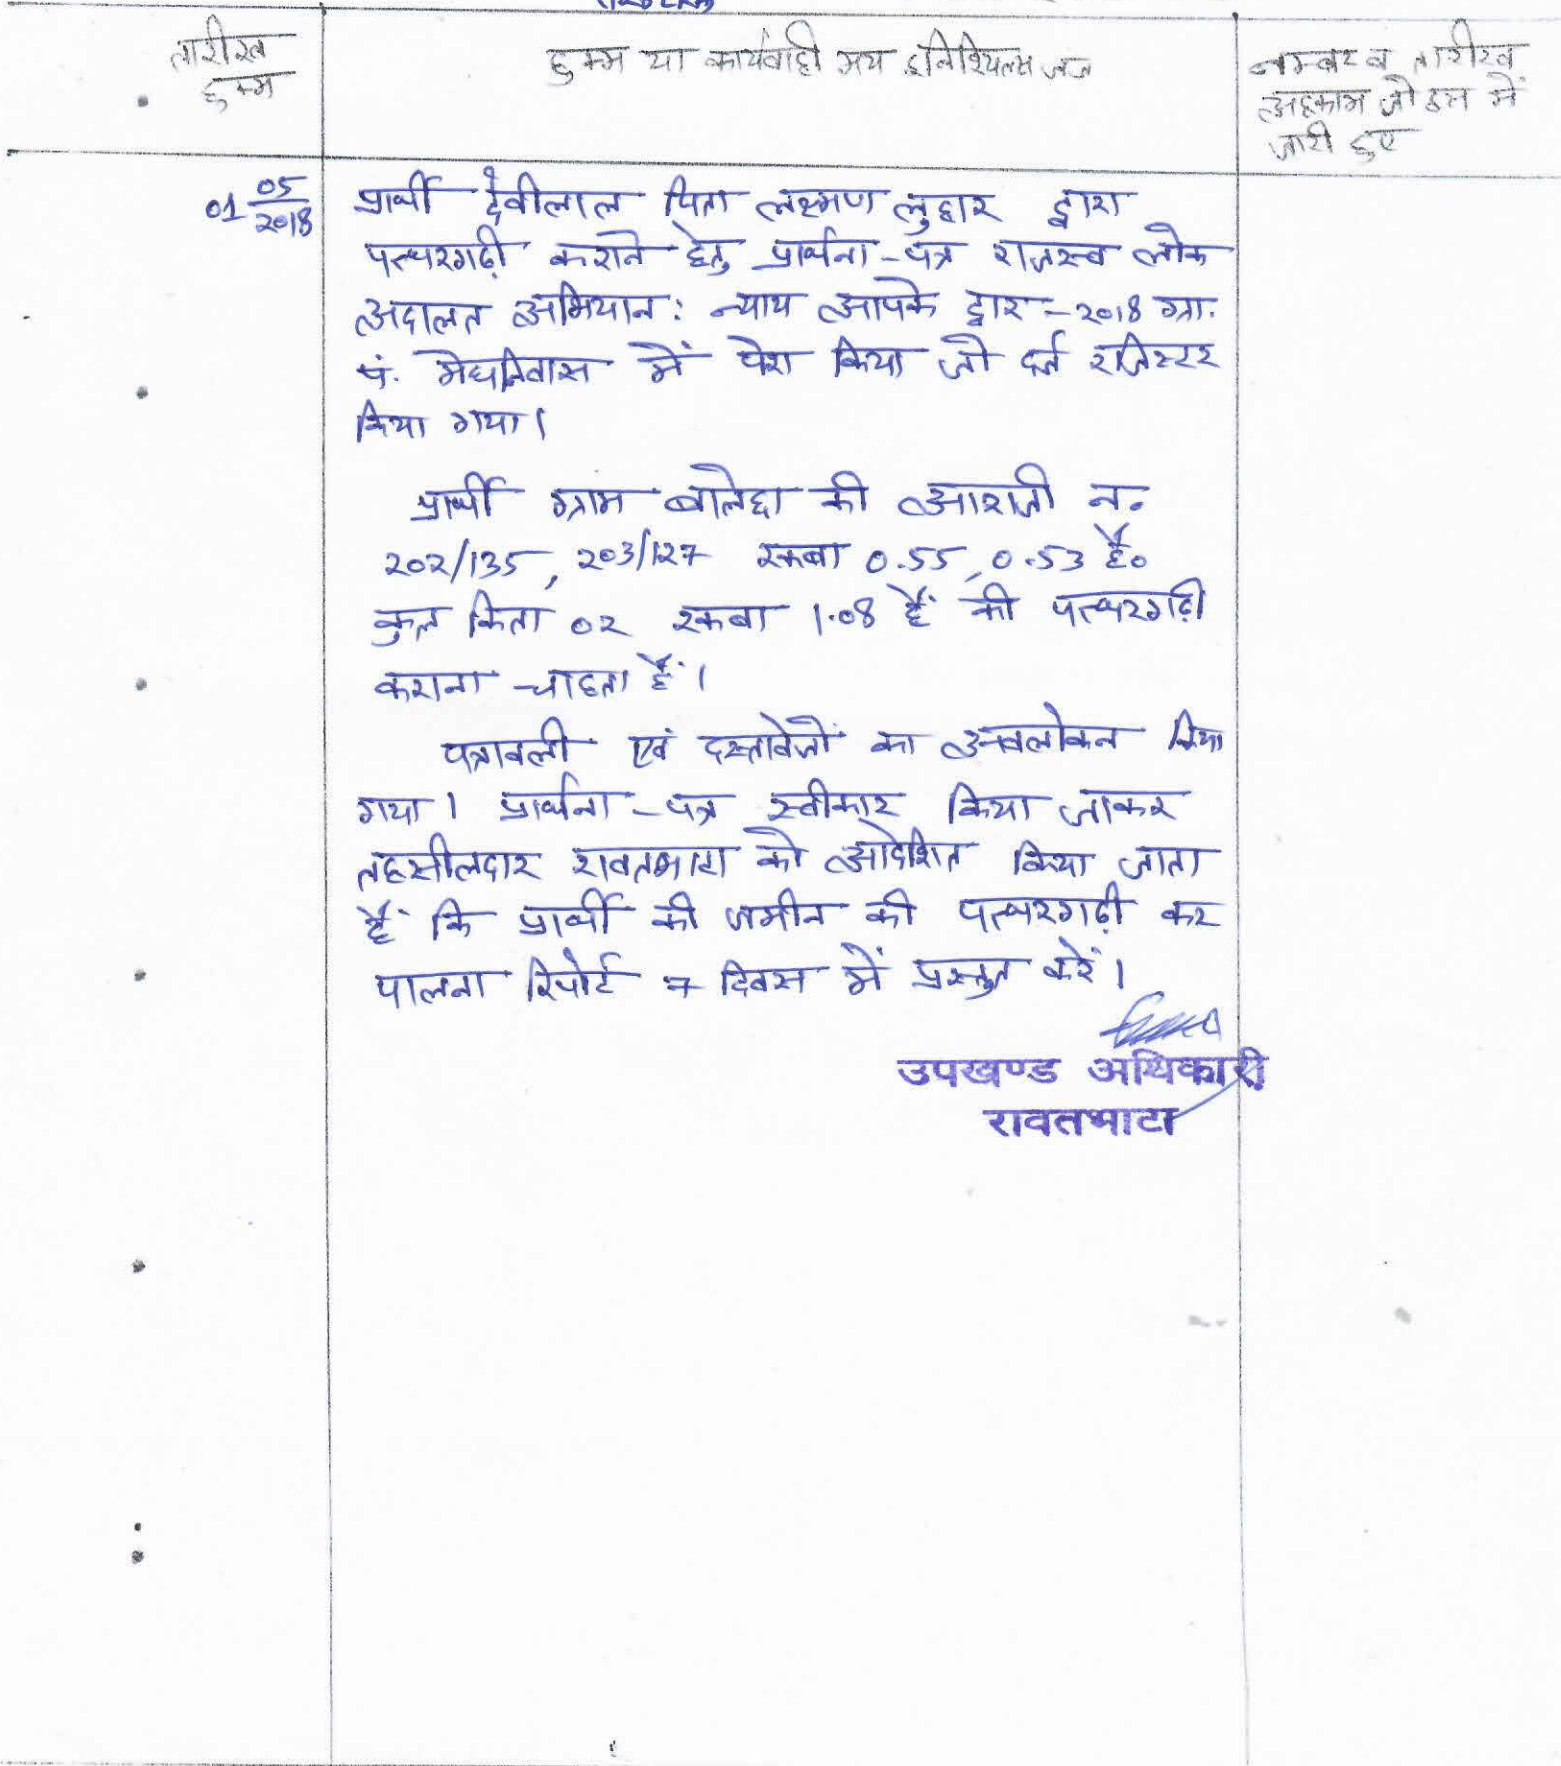 तारीख
हुक्म
हुक्म या कार्यवाही मय इनिशियल्स जज
नम्बर व तारीख
अहकाम जो इस में
जारी हुए
01 05/2018
प्रार्थी देवीलाल पिता लक्ष्मण लुहार द्वारा
पत्थरगढ़ी कराने हेतु प्रार्थना-पत्र राजस्व लोक
अदालत अभियान: न्याय आपके द्वार-2018 ग्रा.
पं. मेघनिवास में पेश किया जो दर्ज रजिस्टर
किया गया।
प्रार्थी ग्राम बालेहा की आराजी न.
202/135, 203/127 रकबा 0.55, 0.53 है॰
कुल किता 02 रकबा 1.08 हैं की पत्थरगढ़ी
कराना चाहता हैं।
पत्रावली एवं दस्तावेजों का अवलोकन किया
गया। प्रार्थना-पत्र स्वीकार किया जाकर
तहसीलदार रावतभाटा को आदेशित किया जाता
हैं कि प्रार्थी की जमीन की पत्थरगढ़ी कर
पालना रिपोर्ट 7 दिवस में प्रस्तुत करें।
उपखण्ड अधिकारी
रावतभाटा